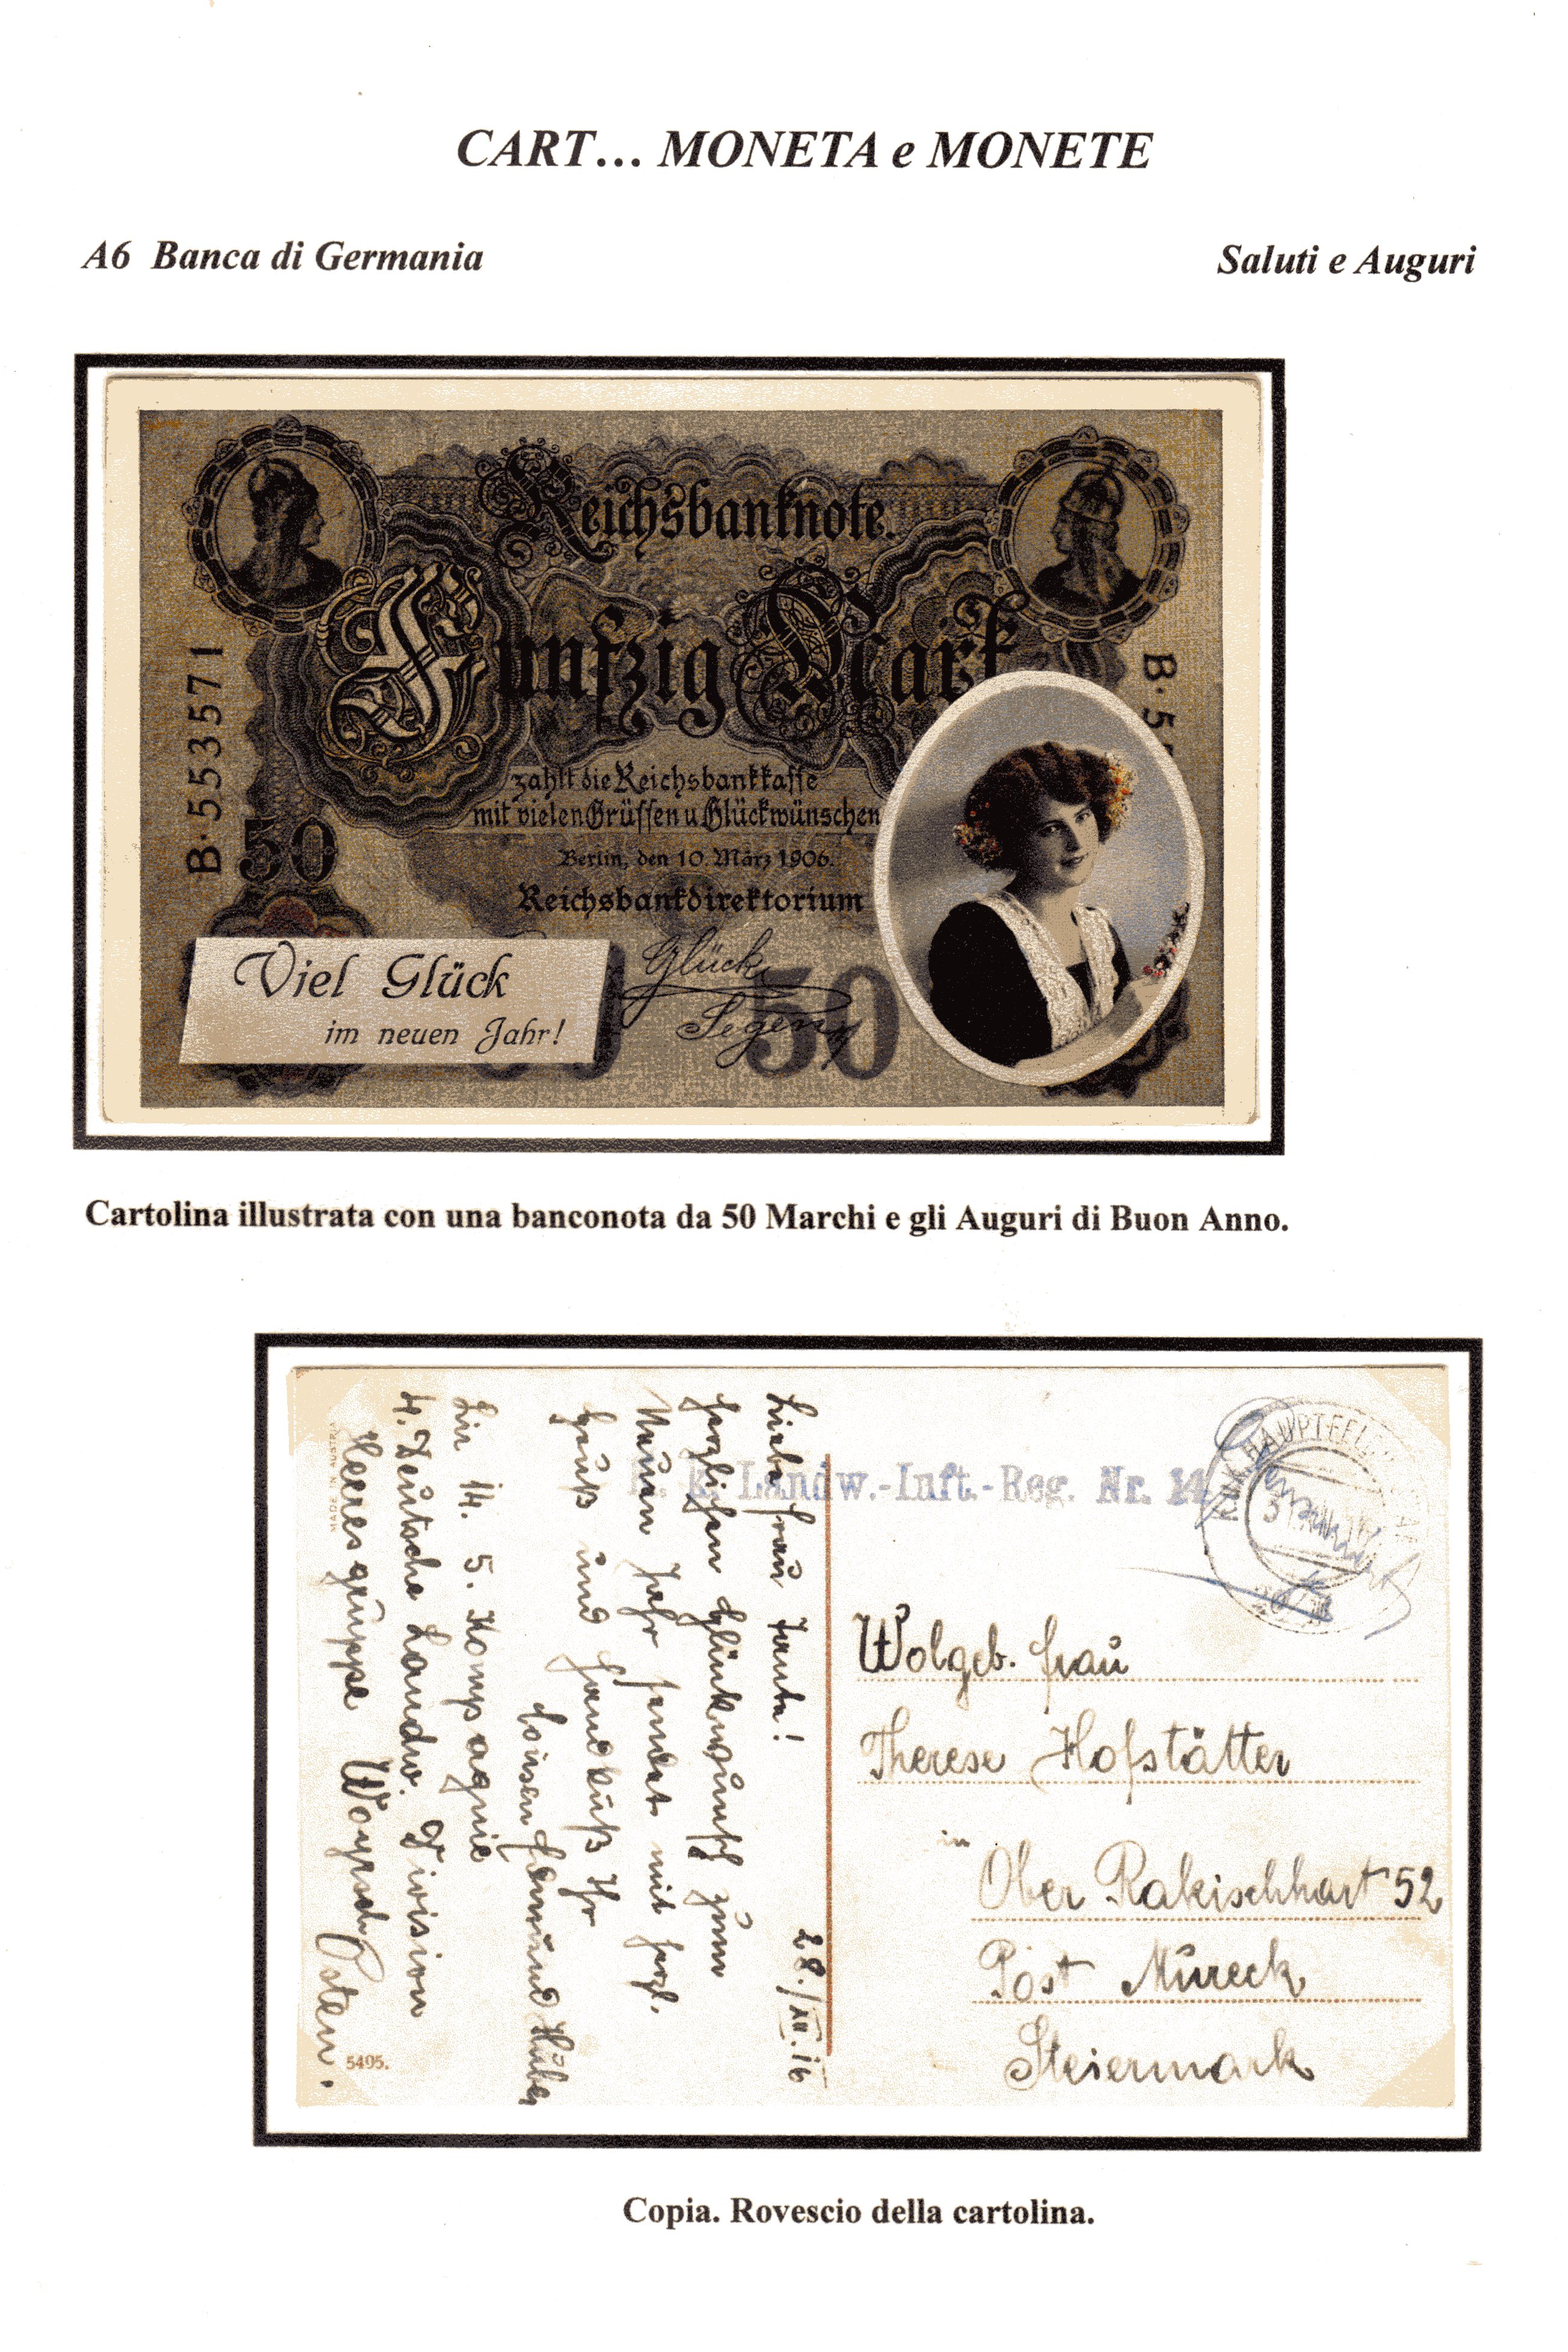 CART... MONETA e MONETE
A6 Banca di Germania
Saluti e Auguri
Reichsbanknote.
Fünfzig Mark
zahlt die Reichsbankkasse
mit vielen Grüssen u Glückwünschen
Berlin, den 10. März 1906.
Reichsbankdirektorium
B·553571
B·5
50
50
Viel Glück
im neuen Jahr!
Glück
Segen
Cartolina illustrata con una banconota da 50 Marchi e gli Auguri di Buon Anno.
K. k. Landw.-Inft.-Reg. Nr. 14
K.u.K. HAUPTFELD
28./XII.16
Liebe Frau Tante!
Herzlichen Glückwunsch zum
Neuen Jahr sendet mit herzl.
Gruß und Handkuß Ihr
Huber
Lir 14. 5. Kompagnie
4. Deutsche Landw. Division
Heeresgruppe Woyrsch Osten.
MADE IN AUSTRIA
5495.
Wolgeb. Frau
Therese Hofstätter
in
Ober Rakischhart 52
Post Mureck
Steiermark
Copia. Rovescio della cartolina.